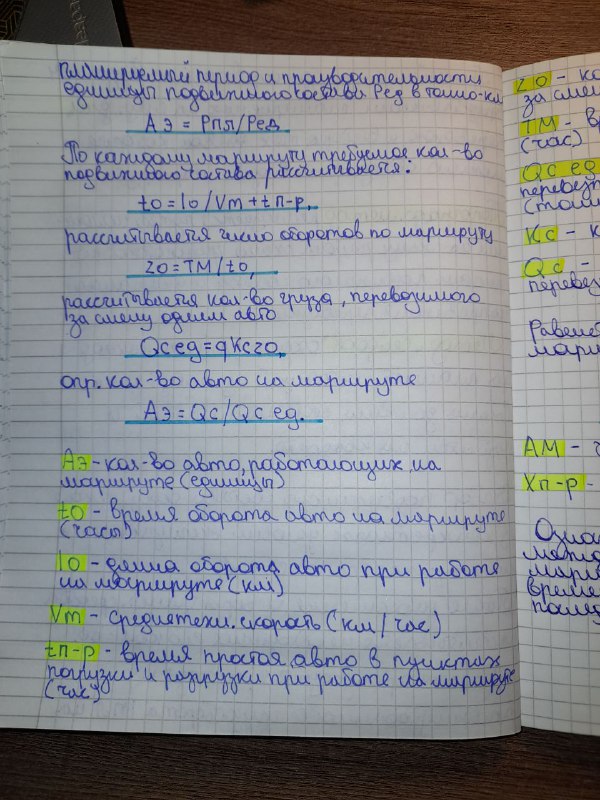 планируемый период и производительности
единицы подвижного состава Ред в тонно-км
Аэ = Рпл/Ред
По каждому маршруту требуемое кол-во
подвижного состава рассчитывается:
to = lo/Vm + tп-р,
рассчитывается число оборотов по маршруту
zo = TM/to,
рассчитывается кол-во груза, перевозимого
за смену одним авто
Qс ед = qKczo,
опр. кол-во авто на маршруте
Аэ = Qc/Qc ед.
Аэ - кол-во авто, работающих на
маршруте (единицы)
to - время оборота авто на маршруте
(часы)
lo - длина оборота авто при работе
на маршруте (км)
Vm - среднетехн. скорость (км/час)
tп-р - время простоя авто в пунктах
погрузки и разгрузки при работе на маршруте
(час)
zo - ко
за сме
TM - в
(час)
Qc ед
перевез
Kc - к
Qc -
перевез
марш
АМ - ч
Хп-р -
Озна
време
послед